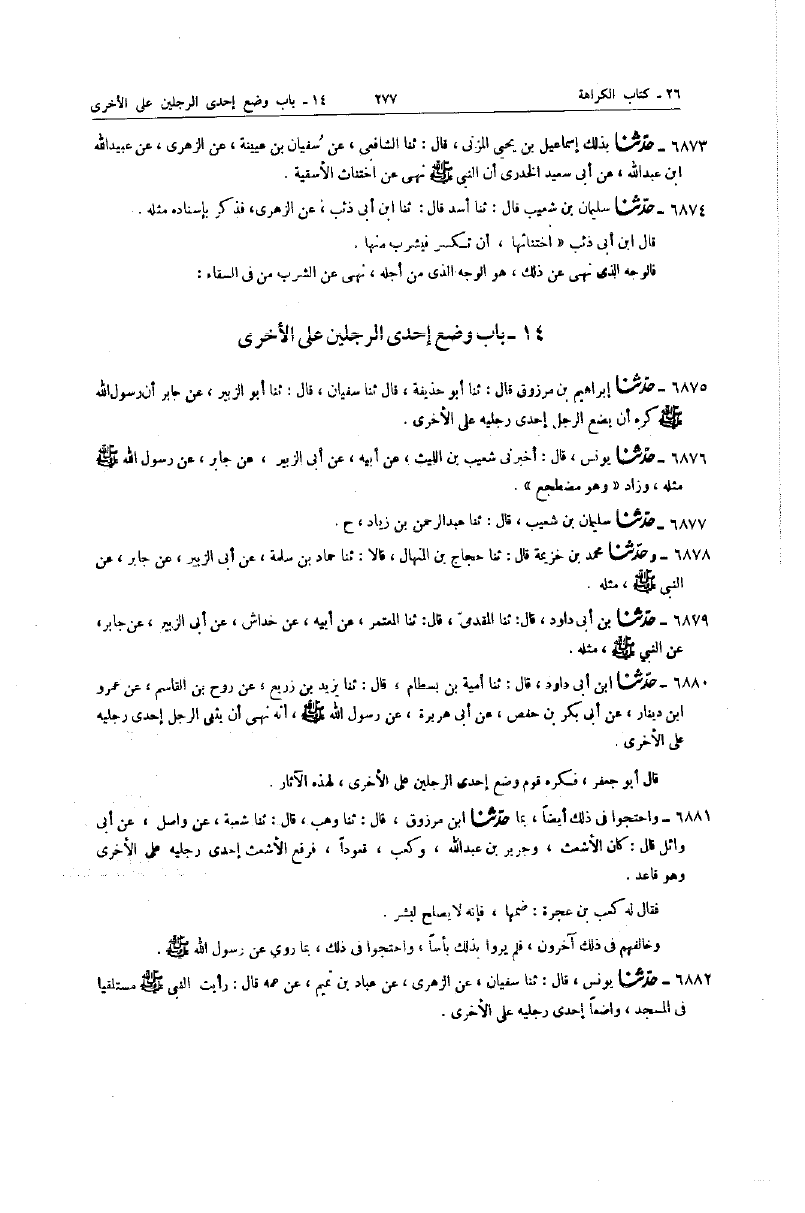 ٢٦ - كتاب الكراهة ٢٧٧ ١٤ - باب وضع إحدى الرجلين على الأخرى
٦٨٧٣ - حدّثنا بذلك إسماعيل بن يحيى المزنى ، قال : ثنا الشافعى ، عن سفيان بن عيينة ، عن الزهرى ، عن عبيدالله
ابن عبدالله ، عن أبى سعيد الخدرى أن النبي ﷺ نهى عن اختناث الأسقية .
٦٨٧٤ - حدّثنا سليمان بن شعيب قال : ثنا أسد قال : ثنا ابن أبى ذئب ، عن الزهرى، فذكر بإسناده مثله .
قال ابن أبى ذئب « اختناثها ، أن تكسر فيشرب منها .
فالوجه الذى نهى عن ذلك ، هو الوجه الذى من أجله ، نهى عن الشرب من فى السقاء :
١٤ - باب وضع إحدى الرجلين على الأخرى
٦٨٧٥ - حدّثنا إبراهيم بن مرزوق قال : ثنا أبو حذيفة ، قال ثنا سفيان ، قال : ثنا أبو الزبير ، عن جابر أن رسول الله
ﷺ كره أن يضع الرجل إحدى رجليه على الأخرى .
٦٨٧٦ - حدّثنا يونس ، قال : أخبرنى شعيب بن الليث ، عن أبيه ، عن أبى الزبير ، عن جابر ، عن رسول الله ﷺ
مثله ، وزاد « وهو مضطجع » .
٦٨٧٧ - حدّثنا سليمان بن شعيب ، قال : ثنا عبدالرحمن بن زياد ، ح .
٦٨٧٨ - وحدّثنا محمد بن خزيمة قال : ثنا حجاج بن المنهال ، قالا : ثنا حماد بن سلمة ، عن أبى الزبير ، عن جابر ، عن
النبي ﷺ ، مثله .
٦٨٧٩ - حدّثنا بن أبى داود ، قال: ثنا المقدمىّ ، قال: ثنا المعتمر ، عن أبيه ، عن خداش ، عن أبى الزبير ، عن جابر،
عن النبي ﷺ ، مثله .
٦٨٨٠ - حدّثنا ابن أبى داود ، قال : ثنا أمية بن بسطام ، قال : ثنا يزيد بن زريع ، عن روح بن القاسم ، عن عمرو
ابن دينار ، عن أبى بكر بن حفص ، عن أبى هريرة ، عن رسول الله ﷺ ، أنه نهى أن يثنى الرجل إحدى رجليه
على الأخرى .
قال أبو جعفر ، فكره قوم وضع إحدى الرجلين على الأخرى ، لهذه الآثار .
٦٨٨١ - واحتجوا فى ذلك أيضاً ، بما حدّثنا ابن مرزوق ، قال : ثنا وهب ، قال : ثنا شعبة ، عن واصل ، عن أبى
وائل قال : كان الأشعث ، وجرير بن عبدالله ، وكعب ، قعوداً ، فرفع الأشعث إحدى رجليه على الأخرى
وهو قاعد .
فقال له كعب بن عجرة : ضمها ، فإنه لا يصلح لبشر .
وخالفهم فى ذلك آخرون ، فلم يروا بذلك بأساً ، واحتجوا فى ذلك ، بما روي عن رسول الله ﷺ .
٦٨٨٢ - حدّثنا يونس ، قال : ثنا سفيان ، عن الزهرى ، عن عباد بن تميم ، عن عمه قال : رأيت النبى ﷺ مستلقيا
فى المسجد ، واضعاً إحدى رجليه على الأخرى .